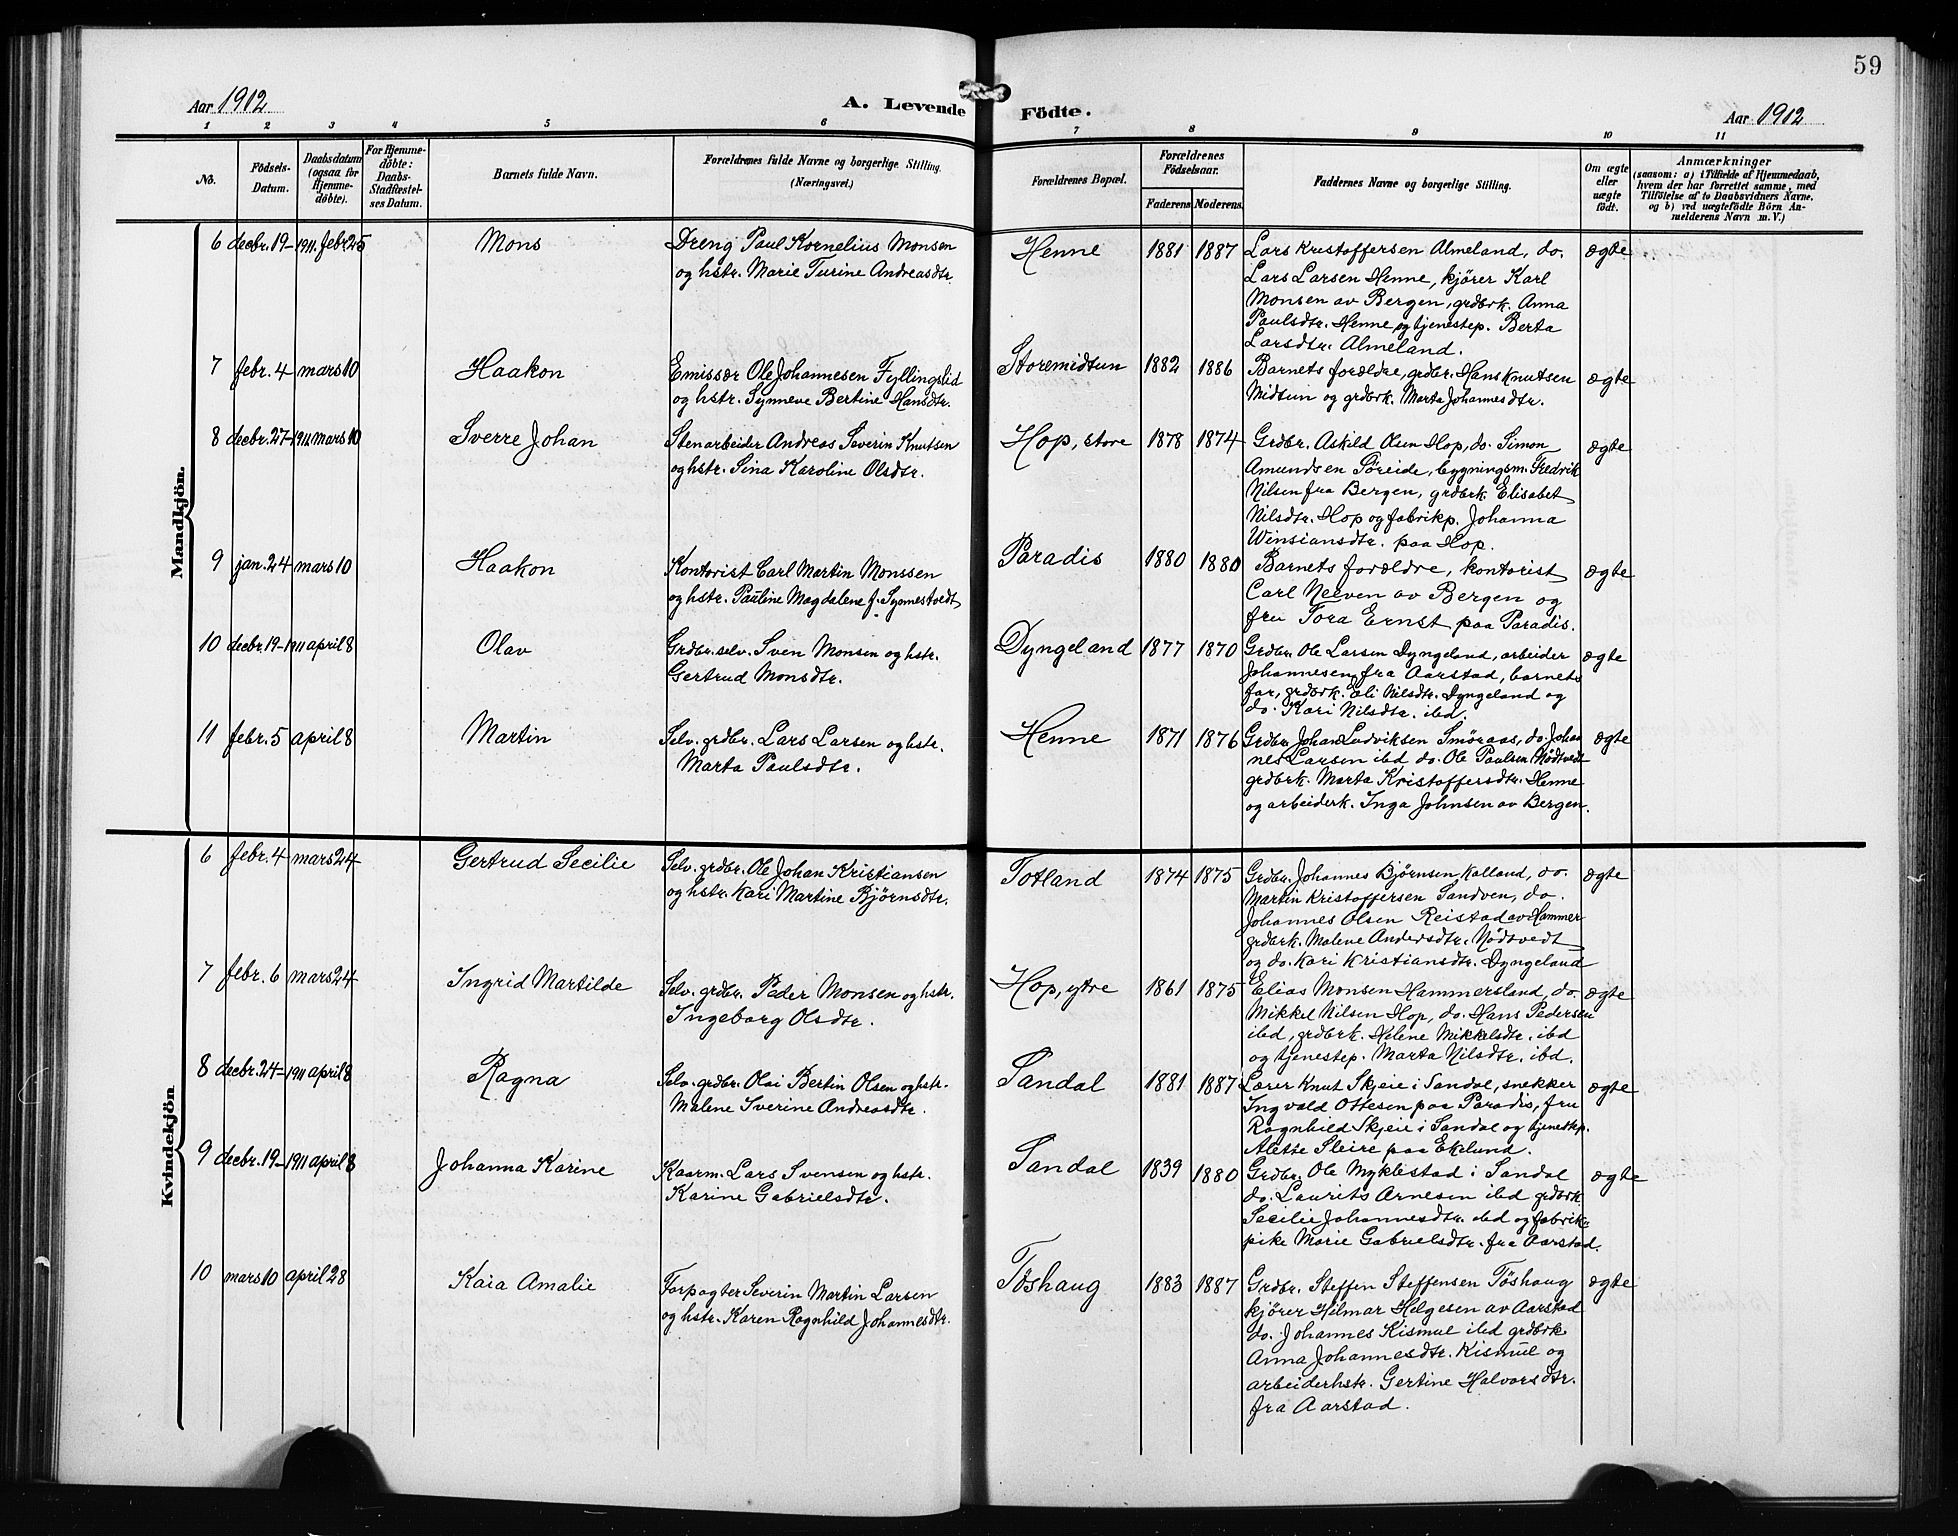 59
Aar 1912
A. Levende Födte.
Aar 1912
1 2 3 4 5 6 7 8 9 10 11
No.
Födsels-
Datum.
Daabsdatum
(ogsaa for
Hjemme-
döbte).
For Hjemme-
döbte:
Daabs-
Stadfæstel-
ses Datum.
Barnets fulde Navn.
Forældrenes fulde Navne og borgerlige Stilling.
(Næringsvei.)
Forældrenes Bopæl.
Forældrenes
Födselsaar.
Faderens Moderens.
Faddernes Navne og borgerlige Stilling.
Om ægte
eller
uægte
født.
Anmærkninger
(saasom: a) i Tilfælde af Hjemmedaab,
hvem der har forrettet samme, med
Tilföielse af to Daabsvidners Navne.
og b) ved uægtefödte Börn An-
melderens Navn m. V.)
Mandkjön.
6 decbr. 19-1911. febr 25 Mons
Dreng Paul Kornelius Monsen
og hstr. Marie Turine Andreasdtr.
Henne 1881 1887
Lars Kristoffersen Almeland, do.
Lars Larsen Henne, kjører Karl
Monsen av Bergen, grdbrk. Anna
Paulsdtr. Henne og tjenestep. Berta
Larsdtr. Almeland.
ægte
7 febr. 4 mars 10 Haakon
Emissær Ole Johannesen Fyllingslid
og hstr. Synneve Bertine Hansdtr.
Storemidtun 1882 1886
Barnets forældre, grdbr. Hans Knutsen
Midtun og grdbrk. Marta Johannesdtr.
ægte
8 decbr. 27-1911 mars 10 Sverre Johan
Stenarbeider Andreas Severin Knutsen
og hstr. Sina Karoline Olsdtr.
Hop, store 1878 1874
Grdbr. Askild Olsen Hop, do. Simon
Amundsen Søreide, bygningsm. Fredrik
Nilsen fra Bergen, grdbrk Elisabet
Nilsdtr. Hop og fabrikp. Johanna
Winsiansdtr. paa Hop.
ægte
9 jan. 24 mars 10 Haakon
Kontorist Carl Martin Monssen
og hstr. Pauline Magdalene f. Synnestvedt
Paradis 1880 1880
Barnets forældre, kontorist
Carl Neeven av Bergen og
fru Tora Ernst paa Paradis.
ægte
10 decbr. 19-1911 april 8 Olav
Grdbr. selv. Sven Monsen og hstr.
Gertrud Monsdtr.
Dyngeland 1877 1870
Grdbr. Ole Larsen Dyngeland, arbeider
Johannesen fra Aarstad, barnets
far, grdbrk. Eli Nilsdtr. Dyngeland og
do. Kari Nilsdtr. ibd.
ægte
11 febr. 5 april 8 Martin
Selv. grdbr. Lars Larsen og hstr.
Marta Paulsdtr.
Henne 1871 1876
Grdbr. Johan Ludviksen Smøraas, do. Johan
nes Larsen ibd do. Ole Paulsen Nødtvedt
grdbrk. Marta Kristoffersdtr. Henne
og arbeiderk. Inga Johnsen av Bergen.
ægte
Kvindekjön
6 febr. 4 mars 24 Gertrud Secilie
Selv. grdbr. Ole Johan Kristiansen
og hstr. Kari Martine Bjørnsdtr.
Totland 1874 1875
Grdbr. Johannes Bjørnsen Kalland, do.
Martin Kristoffersen Sandven, do.
Johannes Olsen Reistad av Hammer
grdbrk. Malene Andersdtr. Nödtvedt
og do. Kari Kristiansdtr. Dyngeland
ægte
7 febr. 6 mars 24 Ingrid Martilde
Selv. grdbr. Peder Monsen og hstr.
Ingeborg Olsdtr.
Hop, ytre 1861 1875
Elias Monsen Hammersland, do.
Mikkel Nilsen Hop, do. Hans Pedersen
ibd, grdbrk. Helene Mikkelsdtr. ibd
og tjenestep. Marta Nilsdtr. ibd.
ægte
8 decbr. 24-1911 april 8 Ragna
Selv. grdbr. Olai Bertin Olsen og hstr.
Malene Sverine Andreasdtr.
Sandal 1881 1887
Lærer Knut Skjeie i Sandal, snekker
Ingvald Ottesen paa Paradis, fru
Ragnhild Skjeie i Sandal og tjenestep.
Alette Sleire paa Ekelund.
ægte
9 decbr. 19-1911 april 8 Johanna Karine
Kaarm. Lars Svensen og hstr.
Karine Gabrielsdtr.
Sandal 1839 1880
Grdbr. Ole Myklestad i Sandal
do. Laurits Arnesen ibd grdbrk
Secilie Johannesdtr. ibd og fabrik-
pike Marie Gabrielsdtr. fra Aarstad.
ægte
10 mars 10 april 28 Kaia Amalie
Forpagter Severin Martin Larsen
og hstr. Karen Ragnhild Johannesdtr.
Tøshaug 1883 1887
Grdbr. Steffen Steffensen Tøshaug
kjører Hilmar Helgesen av Aarstad
do. Johannes Kismul ibd grdbrk
Anna Johannesdtr. Kismul og
arbeiderhstr. Gertine Halvorsdtr.
fra Aarstad.
ægte